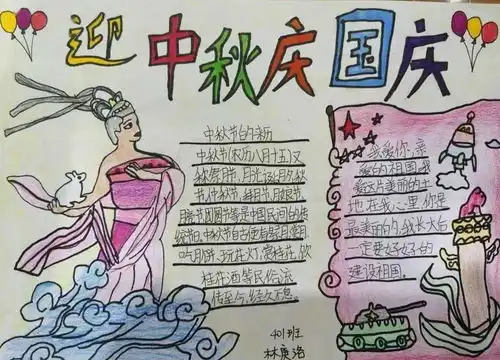 迎中秋庆国庆
中秋节的来历
中秋节(农历八月十五)又
称祭月节、月光诞、月夕、秋
节、仲秋节、拜月节、月娘节、
月亮节、团圆节等,是中国民间的传
统节日。中秋节自古便有祭月、赏月、
吃月饼、玩花灯、赏桂花、饮
桂花酒等民俗,流
传至今,经久不息。
我爱你,亲
爱的祖国,我
爱这片美丽的土
地,在我心里,你是
最美丽的,我长大后
一定要好好的
建设祖国。
401班
林